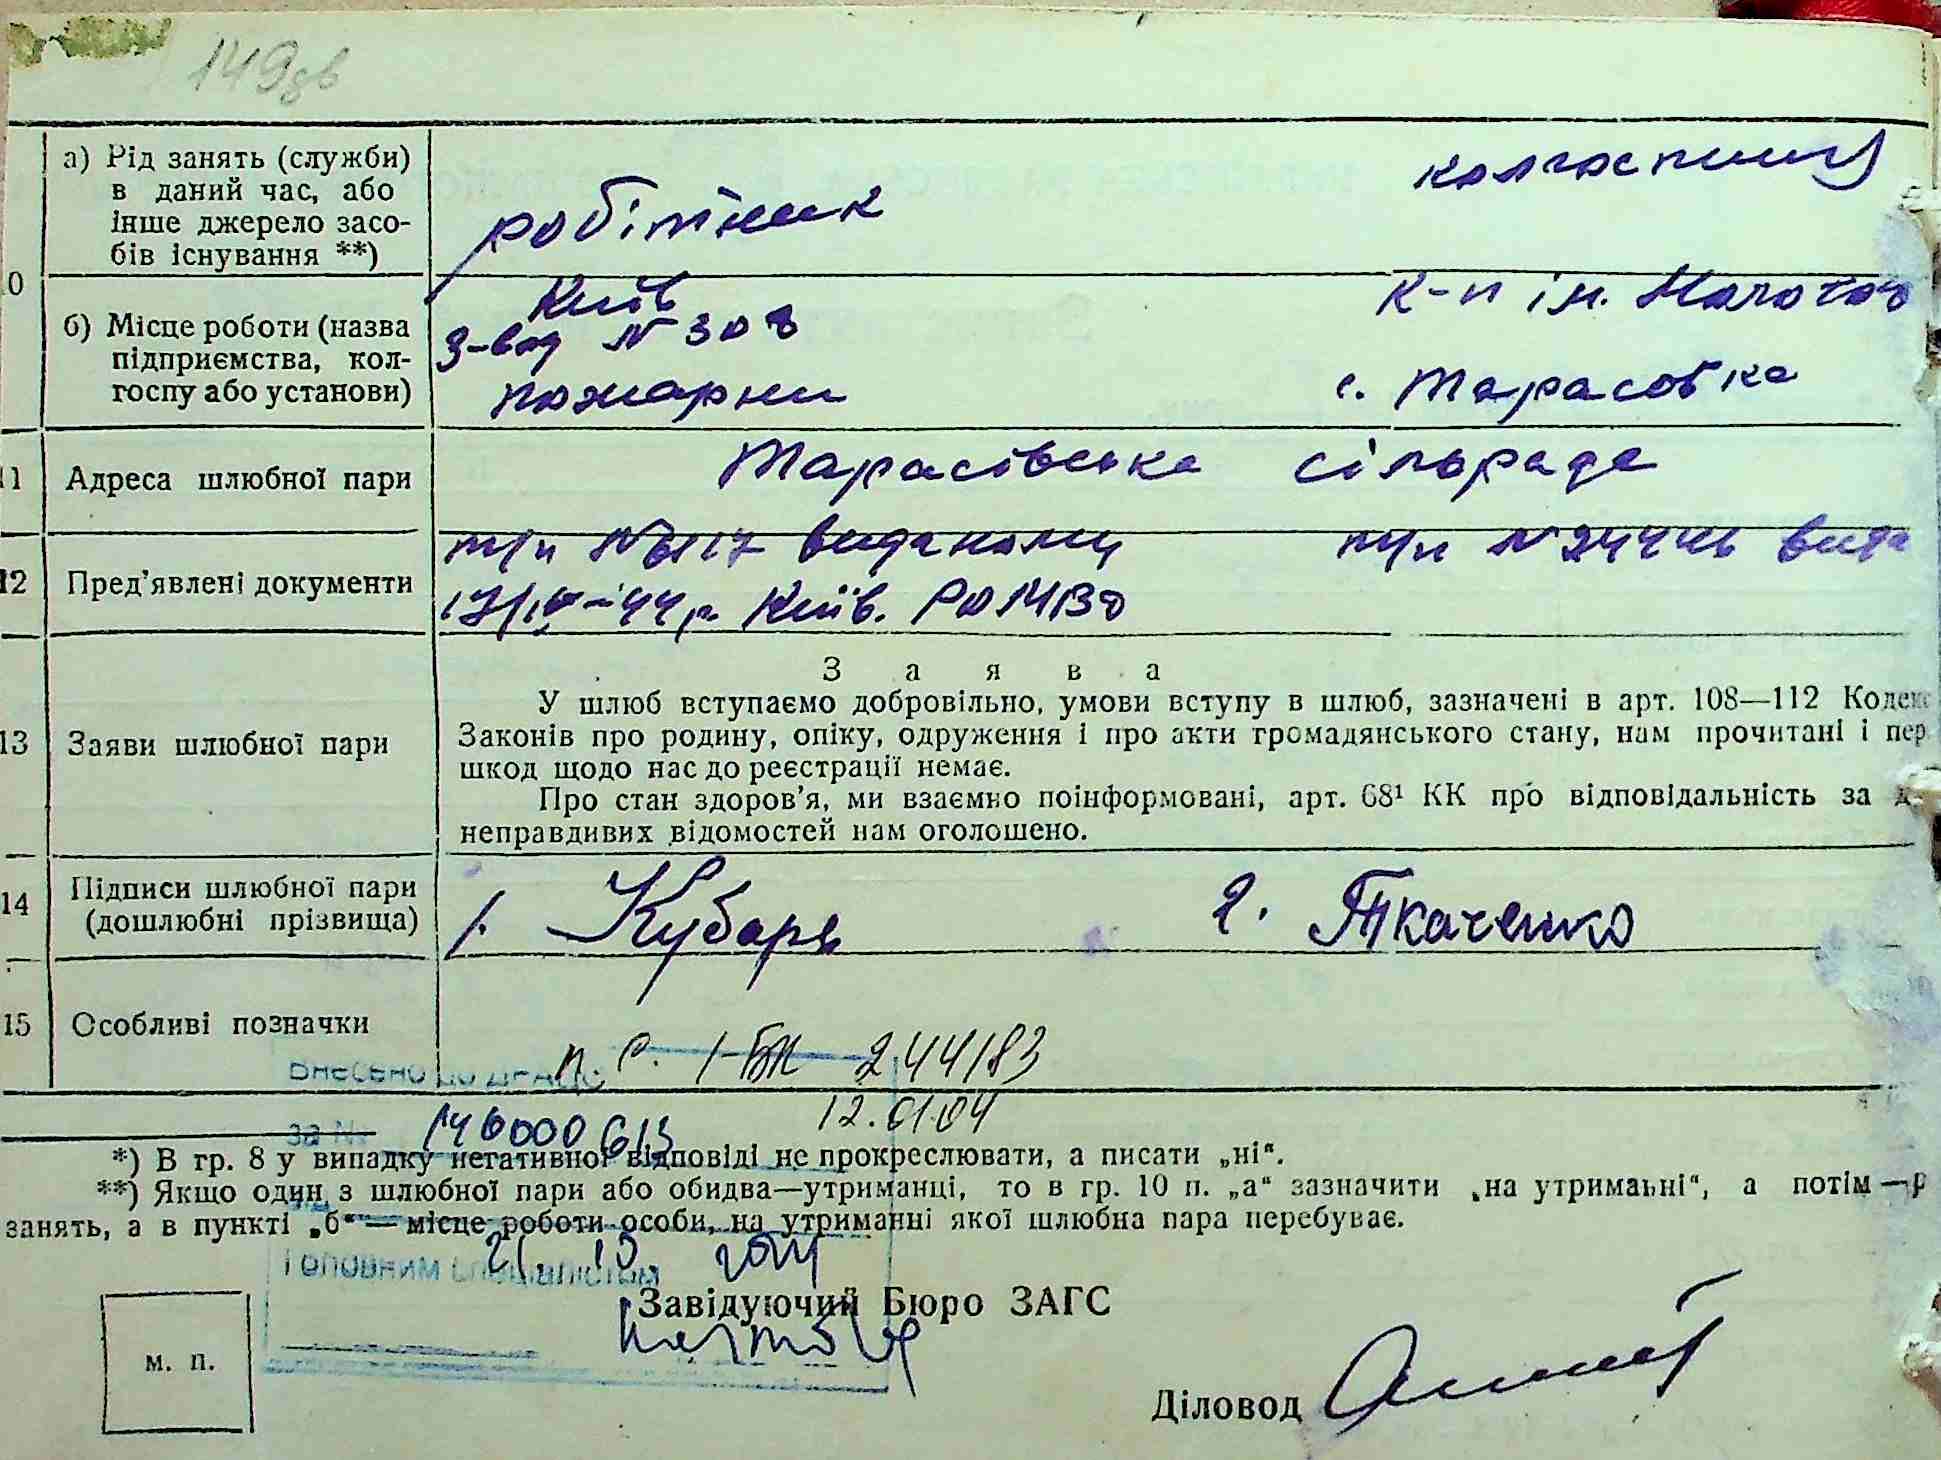 149зв
а) Рід занять (служби)
в даний час, або
інше джерело засо-
бів існування **)
робітник
колгоспниц
10
б) Місце роботи (назва
підприємства, кол-
госпу або установи)
Київ
З-вод № 308
пожарни
к-п ім.
с. Тарасовка
11
Адреса шлюбної пари
Тарасівська сільрада
12
Пред'явлені документи
виданому
17/IV-44 р. Київ.
13
Заяви шлюбної пари
Заява
У шлюб вступаємо добровільно, умови вступу в шлюб, зазначені в арт. 108—112 Кодек
Законів про родину, опіку, одруження і про акти громадянського стану, нам прочитані і пер
шкод щодо нас до реєстрації немає.
Про стан здоров'я, ми взаємно поінформовані, арт. 68¹ КК про відповідальність за д
неправдивих відомостей нам оголошено.
14
Підписи шлюбної пари
(дошлюбні прізвища)
1. Кубарь
2. Ткаченко
15
Особливі позначки
п. с. 1-БК 244183
12.01.04
Внесено до ДРАЦС
за № 146000613
*) В гр. 8 у випадку негативної відповіді не прокреслювати, а писати „ні“.
**) Якщо один з шлюбної пари або обидва—утриманці, то в гр. 10 п. „а“ зазначити „на утриманні“, а потім — р
занять, а в пункті „б“ — місце роботи особи, на утриманні якої шлюбна пара перебуває.
21. 10. 2014
Головним спеціалістом
Завідуючий Бюро ЗАГС
м. п.
Діловод